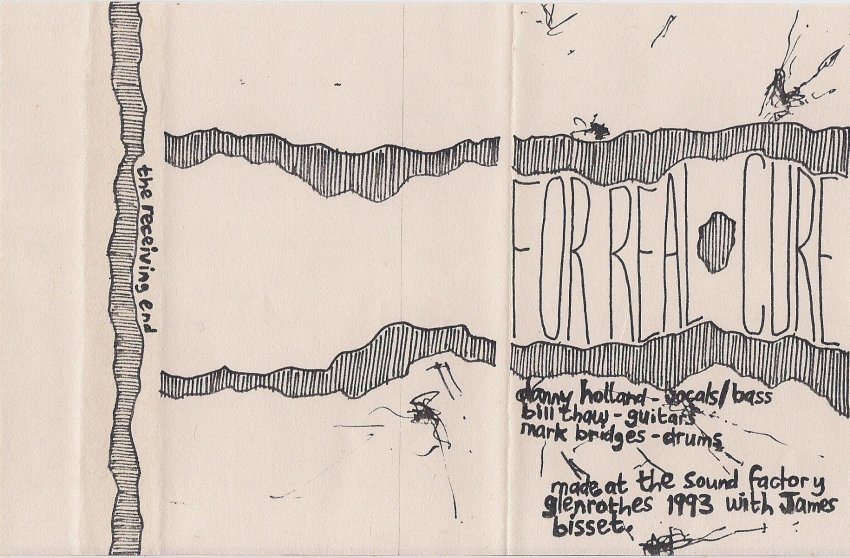 the receiving end
FOR REAL CURE
danny holland - vocals/bass
bill thaw - guitars
mark bridges - drums
made at the sound factory
glenrothes 1993 with James
bisset.